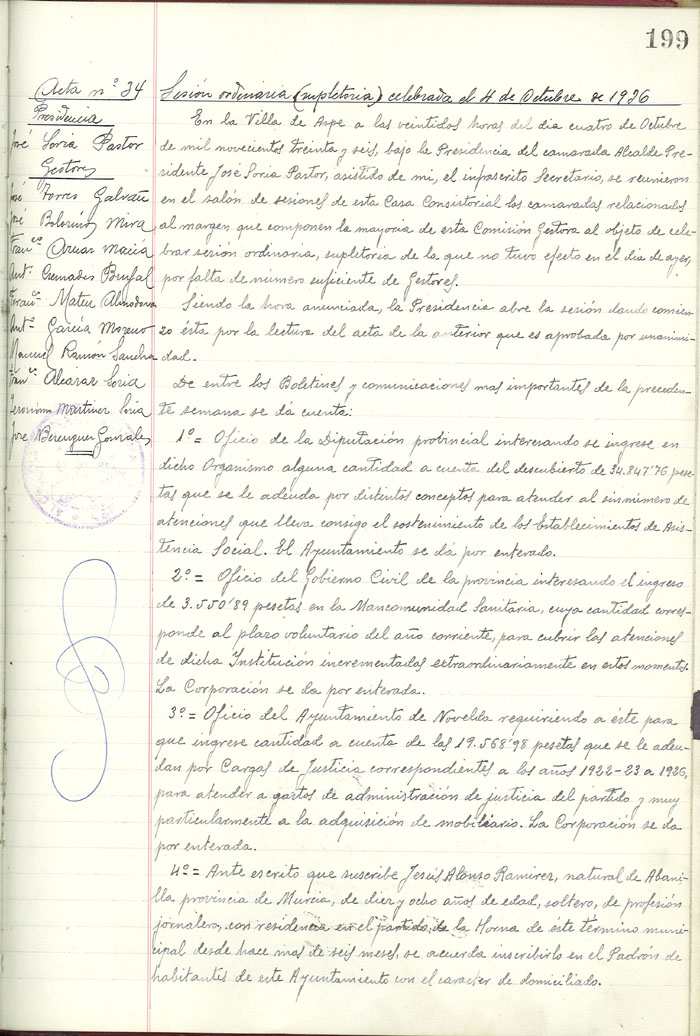 199
Acta nº 34
Presidencia
José Soria Pastor
Gestores
José Torres Galvañ
José Bolorinos Mira
Franco Macià
Ant. Cremades Brufal
Mateu Almodovar
Ant. García Moreno
Manuel Ramón Sanchez
Fran. Alcaraz Soria
Geronimo Martinez Soria
José Berenguer Gonzalez
Sesión ordinaria (supletoria) celebrada el 4 de Octubre de 1936
En la Villa de Aspe a las veintidos horas del dia cuatro de Octubre
de mil novecientos treinta y seis, bajo la Presidencia del camarada Alcalde Pre-
sidente José Soria Pastor, asistido de mi, el infrascrito Secretario, se reunieron
en el salón de sesiones de esta Casa Consistorial los camaradas relacionados
al margen que componen la mayoria de esta Comisión Gestora al objeto de cele-
brar sesión ordinaria, supletoria de la que no tuvo efecto en el dia de ayer,
por falta de número suficiente de Gestores.
Siendo la hora anunciada, la Presidencia abre la sesión dando comien-
zo ésta por la lectura del acta de la anterior que es aprobada por unanimi-
dad.
De entre los Boletines y comunicaciones mas importantes de la preceden-
te semana se dá cuenta:
1º = Oficio de la Diputación provincial interesando se ingrese en
dicho Organismo alguna cantidad a cuenta del descubierto de 34.847'76 pese-
tas que se le adeuda por distintos conceptos para atender al sinnúmero de
atenciones que lleva consigo el sostenimiento de los Establecimientos de Asis-
tencia Social. El Ayuntamiento se dá por enterado.
2º = Oficio del Gobierno Civil de la provincia interesando el ingreso
de 3.550'89 pesetas en la Mancomunidad Sanitaria, cuya cantidad corres-
ponde al plazo voluntario del año corriente, para cubrir las atenciones
de dicha Institución incrementadas extraordinariamente en estos momentos.
La Corporación se da por enterada.
3º = Oficio del Ayuntamiento de Novelda requiriendo a éste para
que ingrese cantidad a cuenta de las 19.568'98 pesetas que se le adeu-
dan por Cargas de Justicia correspondientes a los años 1922-23 a 1936,
para atender a gastos de administración de justicia del partido y muy
particularmente a la adquisición de mobiliario. La Corporación se da
por enterada.
4º = Ante escrito que suscribe Jesús Alonso Ramirez, natural de Abani-
lla provincia de Murcia, de diez y ocho años de edad, soltero, de profesión
jornalero, con residencia en el partido de la Horna de éste termino muni-
cipal desde hace mas de seis meses, se acuerda inscribirlo en el Padrón de
habitantes de este Ayuntamiento con el caracter de domiciliado.